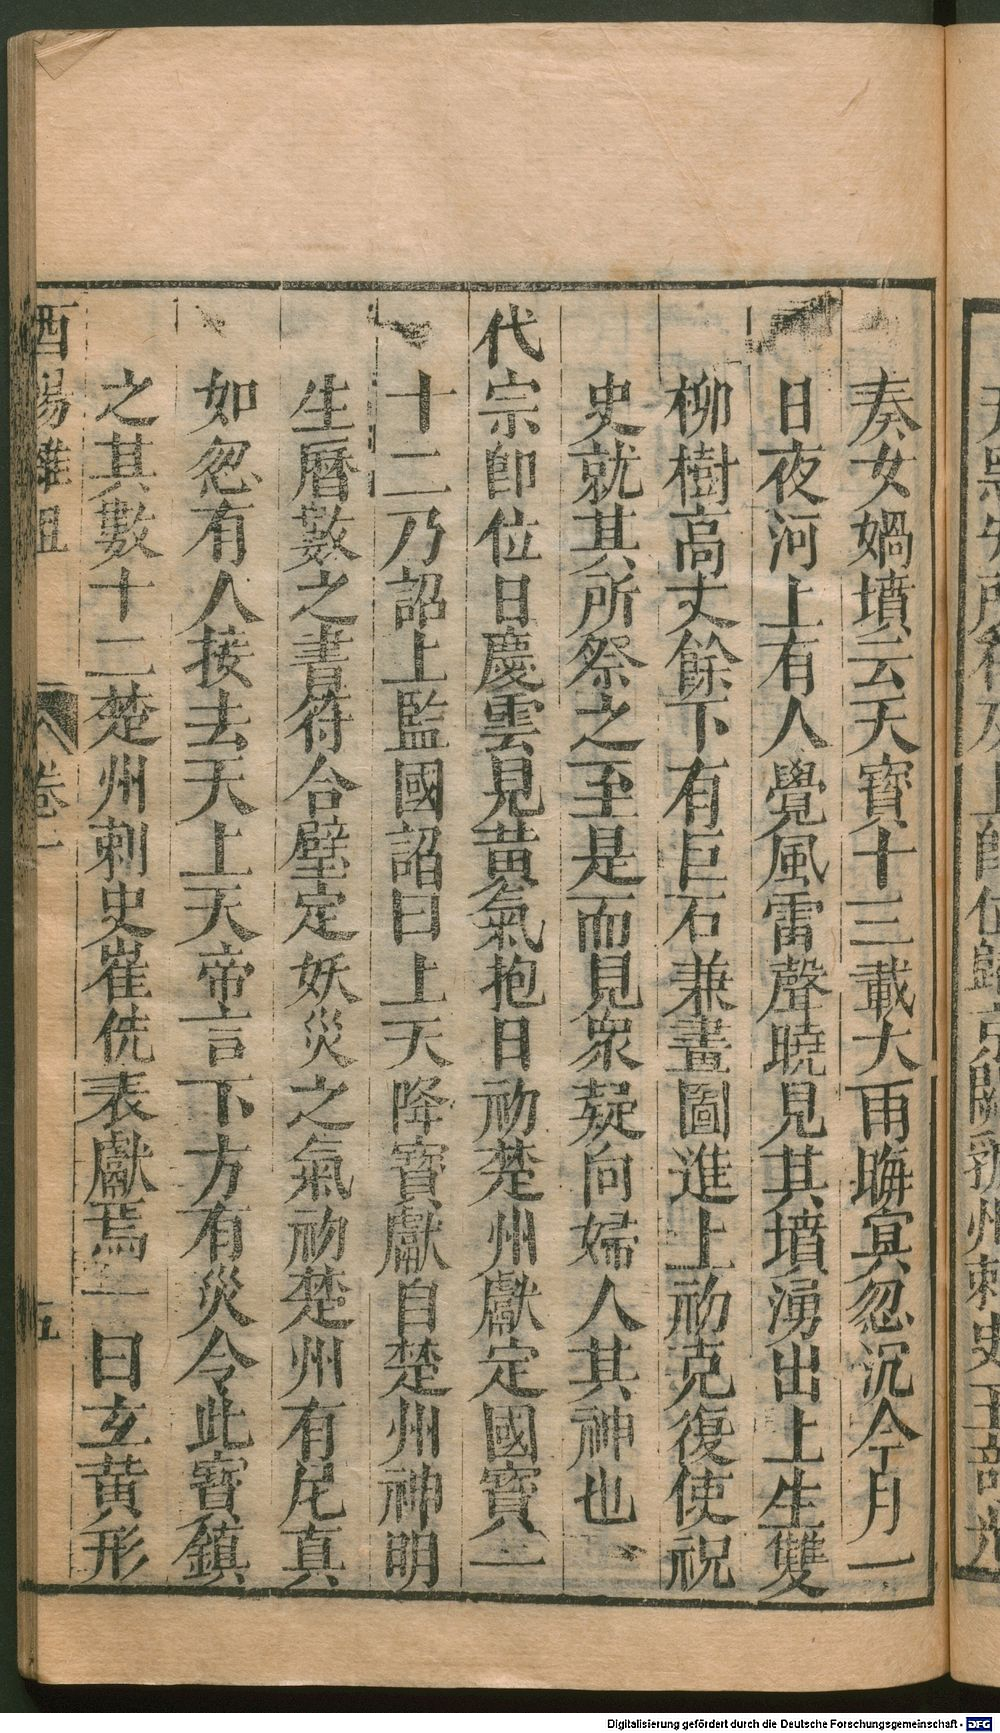 奏女媧墳云天寶十三載大雨晦冥忽沉今月一
日夜河上有人覺風雷聲曉見其墳湧出上生雙
柳樹高丈餘下有巨石兼畫圖進上初克復使祝
史就其所祭之至是而見衆疑向婦人其神也
代宗即位日慶雲見黃氣抱日初楚州獻定國寶一
十二乃詔上監國詔曰上天降寶獻自楚州神明
生曆數之書符合璧定妖災之氣初楚州有尼真
如忽有人接去天上天帝言下方有災令此寶鎮
之其數十二楚州刺史崔侁表獻焉一曰玄黃形
酉陽雜俎 卷一 五
Digitalisierung gefördert durch die Deutsche Forschungsgemeinschaft - DFG